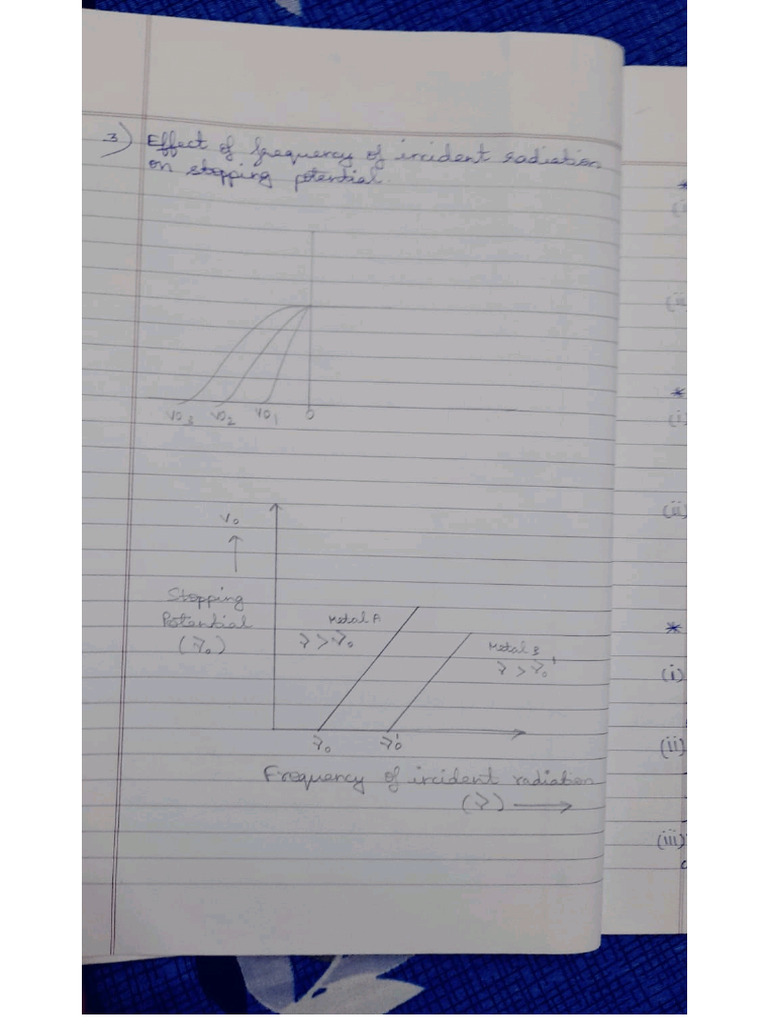 3) Effect of frequency of incident radiation
on stopping potential.
V03 V02 V01 0
V0
Stopping
Potential
(ν0)
Metal A
ν > ν0
Metal B
ν > ν0'
ν0 ν0'
Frequency of incident radiation
(ν)
*
(i)
(ii)
*
(i)
(ii)
*
(i)
(ii)
(iii)